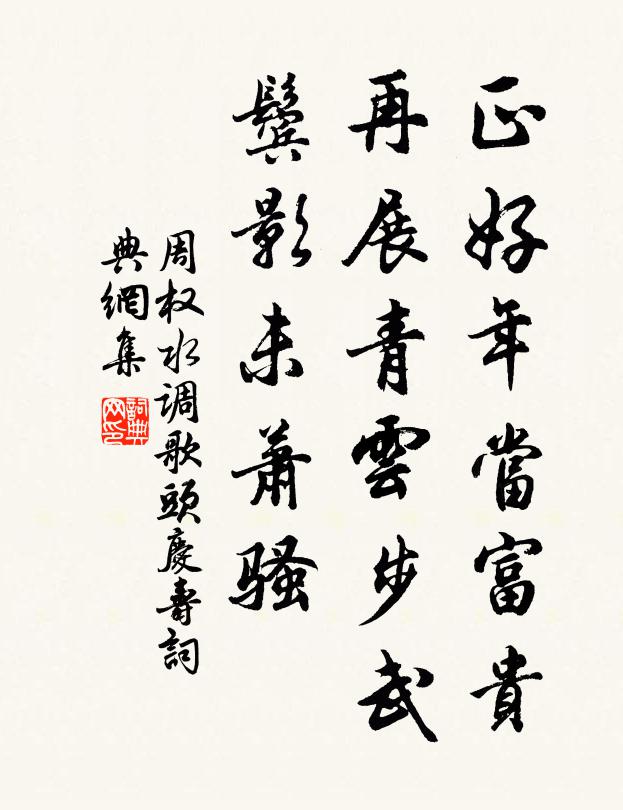 正好年當富貴
再展青雲步武
鬓影未萧骚
周权水调歌頭慶壽詞
典網集
詞典
网印